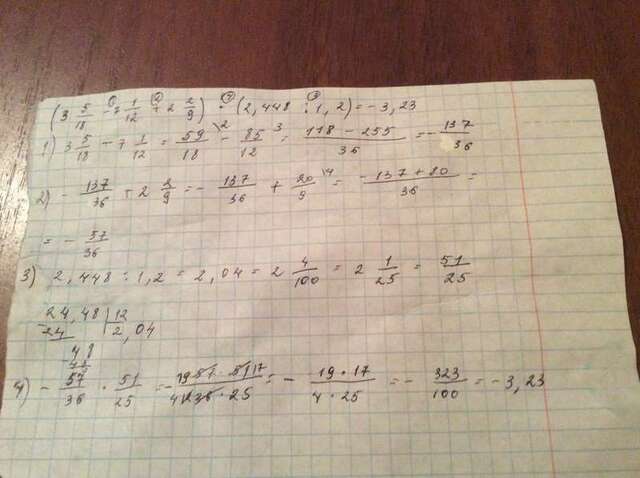 (3 5/18 - 7 1/12 + 2 2/9) · (2,448 : 1,2) = -3,23
1) 3 5/18 - 7 1/12 = 59/18 \2 - 85/12 \3 = (118 - 255)/36 = - 137/36
2) - 137/36 + 2 2/9 = - 137/36 + 20/9 \4 = (-137 + 80)/36 =
= - 57/36
3) 2,448 : 1,2 = 2,04 = 2 4/100 = 2 1/25 = 51/25
24,48 | 12
24 | 2,04
48
4) - 57/36 · 51/25 = - 19 · 17/4 · 25 = - 323/100 = -3,23